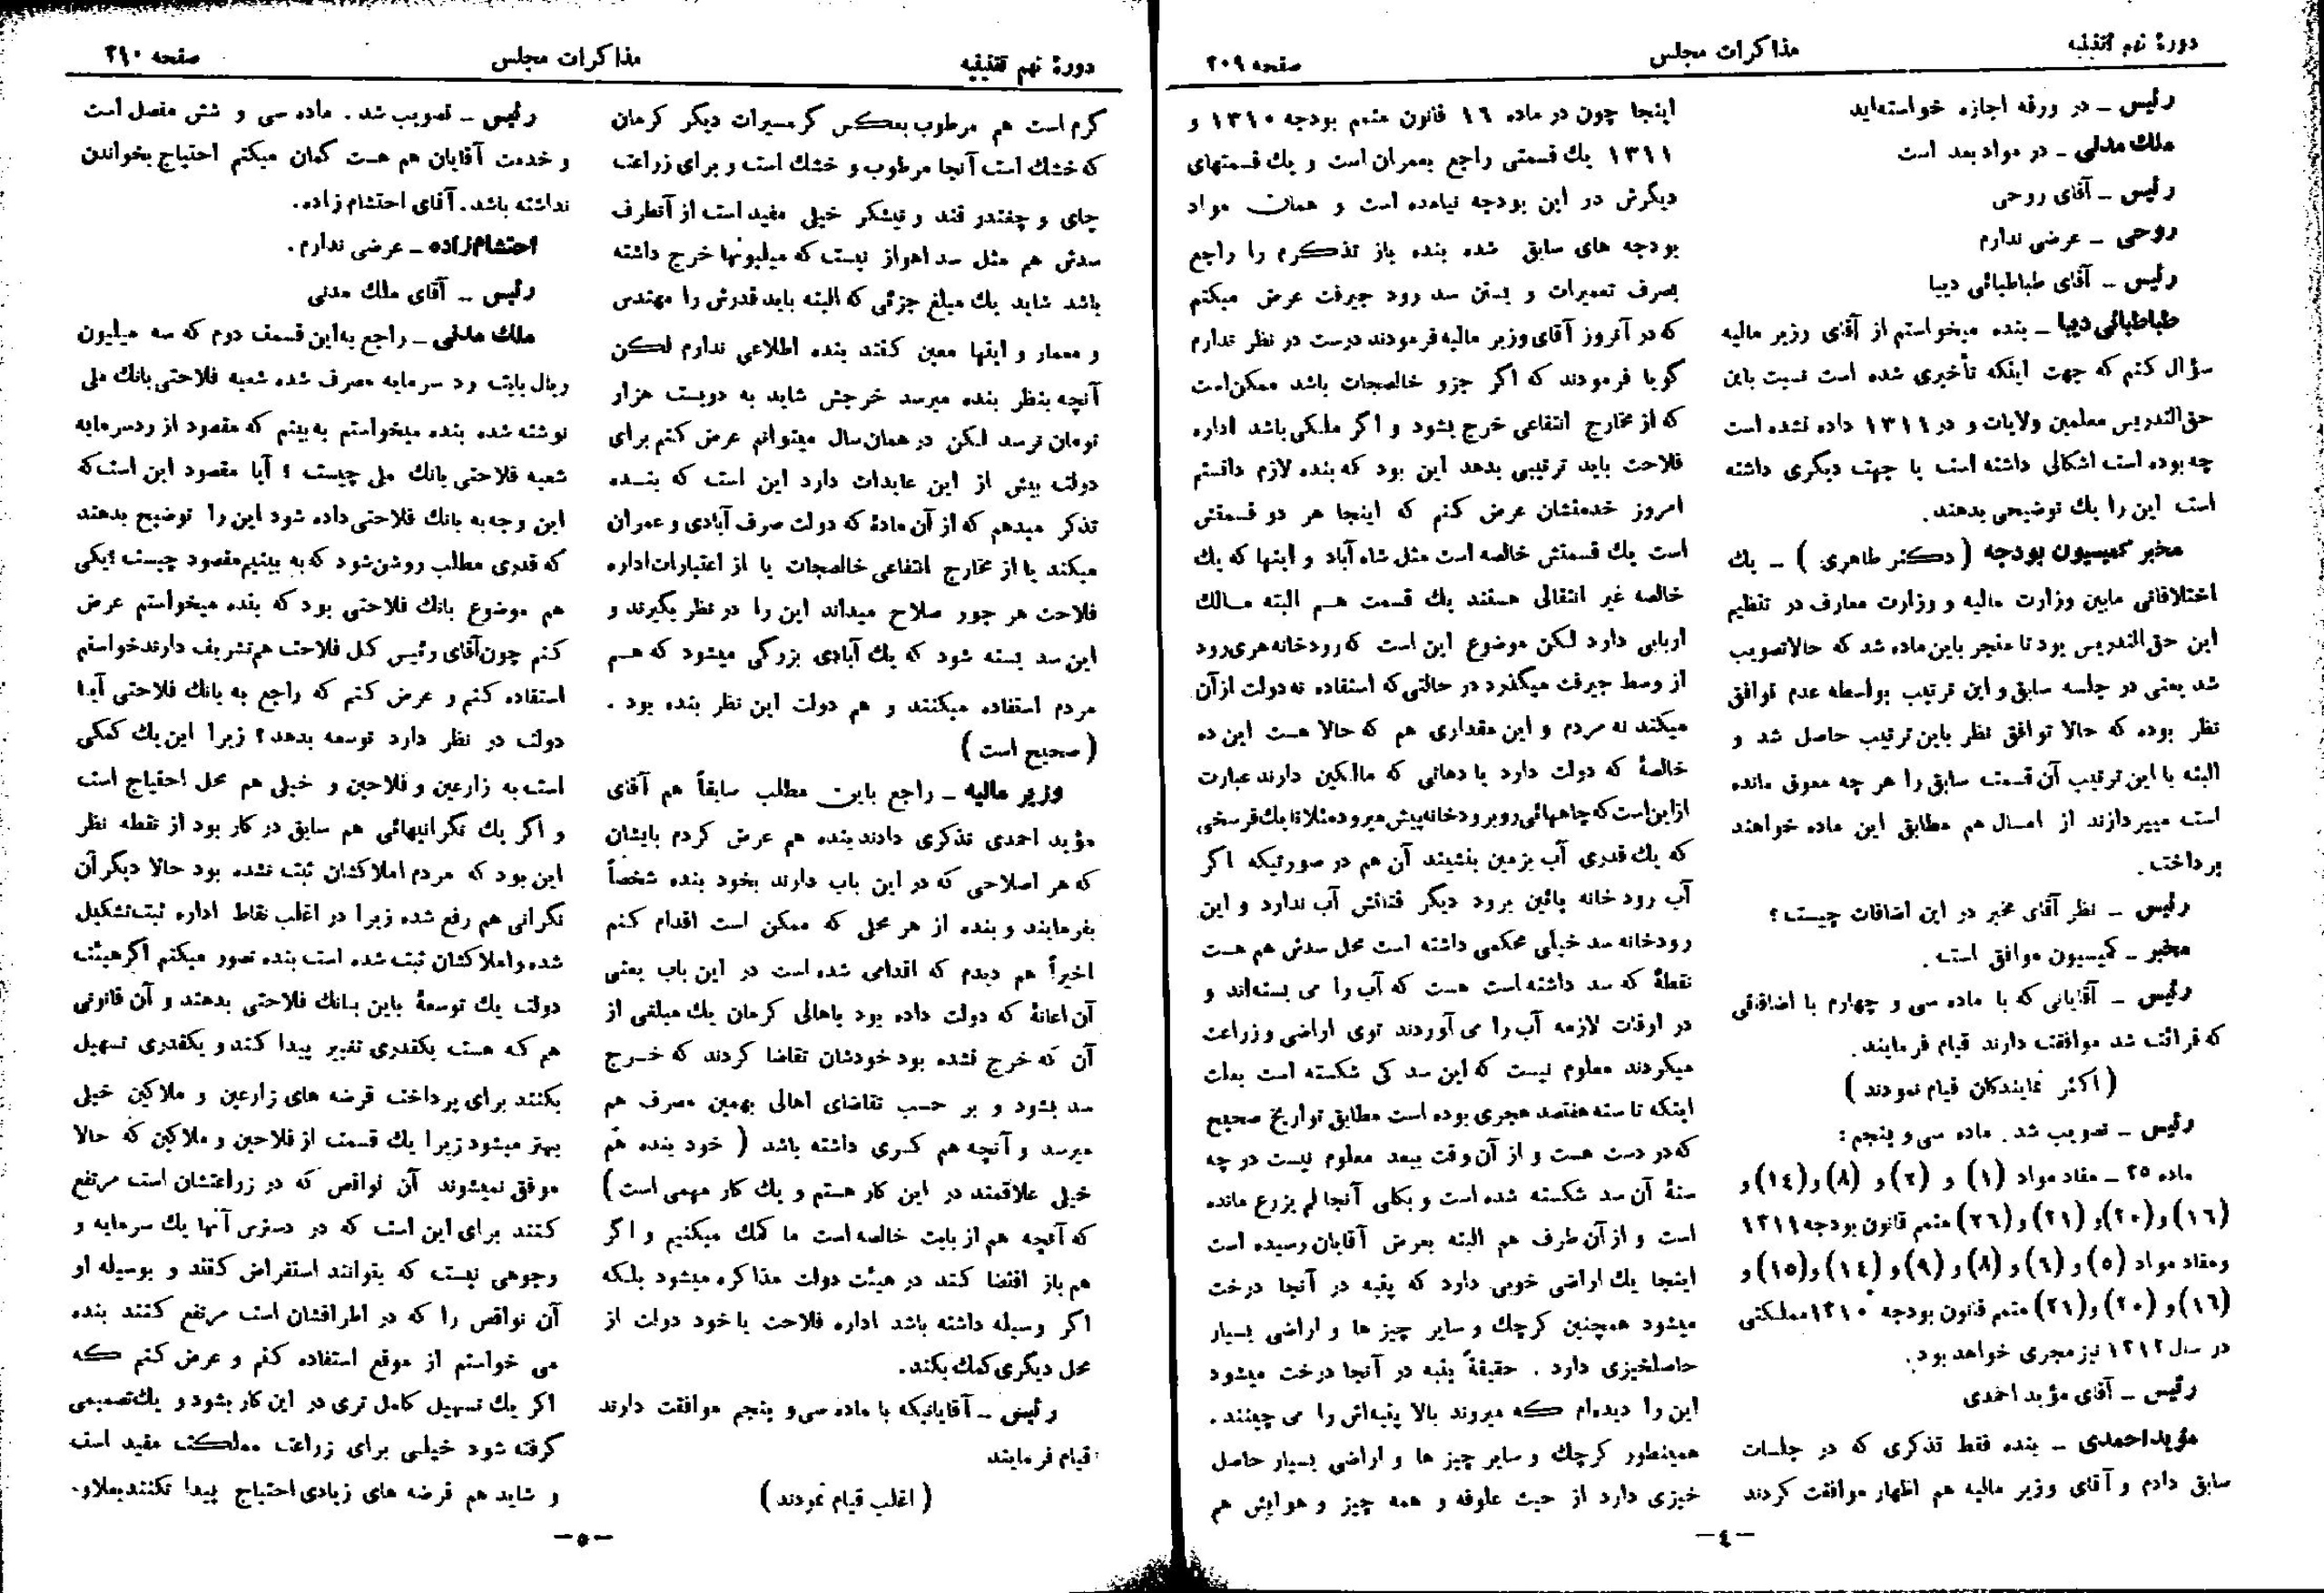 دورهٔ نهم تقنینیه
مذاکرات مجلس
صفحه ۲۰۹
رئیس ــ در ورقه اجازه خواسته‌اید
ملک مدنی ــ در مواد بعد است
رئیس ــ آقای روحی
روحی ــ عرضی ندارم
رئیس ــ آقای طباطبائی دیبا
طباطبائی دیبا ــ بنده میخواستم از آقای وزیر مالیه
سؤال کنم که جهت اینکه تأخیری شده است نسبت باین
حق‌التدریس معلمین ولایات و در ۱۳۱۱ داده نشده است
چه بوده است اشکالی داشته است یا جهت دیگری داشته
است این را یک توضیحی بدهند.
مخبر کمیسیون بودجه (دکتر طاهری) ــ یک
اختلافاتی مابین وزارت مالیه و وزارت معارف در تنظیم
این حق‌التدریس بود تا منجر باین ماده شد که حالا تصویب
شد یعنی در جلسه سابق و این ترتیب بواسطه عدم توافق
نظر بوده که حالا توافق نظر باین ترتیب حاصل شد و
البته با این ترتیب آن قسمت سابق را هر چه معوق مانده
است میپردازند از امسال هم مطابق این ماده خواهند
پرداخت.
رئیس ــ نظر آقای مخبر در این اضافات چیست؟
مخبر ــ کمیسیون موافق است.
رئیس ــ آقایانی که با ماده سی و چهارم با اضافاتی
که قرائت شد موافقت دارند قیام فرمایند.
(اکثر نمایندگان قیام نمودند)
رئیس ــ تصویب شد. ماده سی و پنجم:
ماده ۳۵ ــ مفاد مواد (۱) و (۲) و (۸) و (۱۴) و
(۱۶) و (۲۰) و (۲۱) و (۲۶) متمم قانون بودجه ۱۳۱۱
و مفاد مواد (۵) و (۶) و (۸) و (۹) و (۱۴) و (۱۵) و
(۱۶) و (۲۰) و (۲۱) متمم قانون بودجه ۱۳۱۰ مملکتی
در سال ۱۳۱۲ نیز مجری خواهد بود.
رئیس ــ آقای مؤید احمدی
مؤید احمدی ــ بنده فقط تذکری که در جلسات
سابق دادم و آقای وزیر مالیه هم اظهار موافقت کردند
اینجا چون در ماده ۱۶ قانون متمم بودجه ۱۳۱۰ و
۱۳۱۱ یک قسمتی راجع بعمران است و یک قسمتهای
دیگرش در این بودجه نیامده است و همان مواد
بودجه های سابق شده بنده باز تذکرم را راجع
بصرف تعمیرات و بستن سد رود جیرفت عرض میکنم
که در آنروز آقای وزیر مالیه فرمودند درست در نظر ندارم
گویا فرمودند که اگر جزو خالصجات باشد ممکن است
که از مخارج انتفاعی خرج بشود و اگر ملکی باشد اداره
فلاحت باید ترتیبی بدهد این بود که بنده لازم دانستم
امروز خدمتشان عرض کنم که اینجا هر دو قسمتش
است یک قسمتش خالصه است مثل شاه آباد و اینها که یک
خالصه غیر انتقالی هستند یک قسمت هم البته مالک
اربابی دارد لکن موضوع این است که رودخانه هری رود
از وسط جیرفت میگذرد در حالتی که استفاده نه دولت از آن
میکند نه مردم و این مقداری هم که حالا هست این ده
خالصهٔ که دولت دارد یا دهاتی که مالکین دارند عبارت
از این است که چاههائی روبرودخانه پیش میرود مثلا تا یک فرسخی
که یک قدری آب بزمین بنشیند آن هم در صورتیکه اگر
آب رودخانه پائین برود دیگر قناتش آب ندارد و این
رودخانه سد خیلی محکمی داشته است محل سدش هم هست
نقطهٔ که سد داشته است هست که آب را می بسته‌اند و
در اوقات لازمه آب را می آوردند توی اراضی و زراعت
میکردند معلوم نیست که این سد کی شکسته است بعلت
اینکه تا سنه هفتصد هجری بوده است مطابق تواریخ صحیح
که در دست هست و از آن وقت ببعد معلوم نیست در چه
سنهٔ آن سد شکسته شده است و بکلی آنجا لم یزرع مانده
است و از آن طرف هم البته بعرض آقایان رسیده است
اینجا یک اراضی خوبی دارد که پنبه در آنجا درخت
میشود همچنین کرچک و سایر چیز ها و اراضی بسیار
حاصلخیزی دارد. حقیقةً پنبه در آنجا درخت میشود
این را دیده‌ام که میروند بالا پنبه‌اش را می چینند.
همینطور کرچک و سایر چیز ها و اراضی بسیار حاصل
خیزی دارد از حیث علوفه و همه چیز و هوایش هم
ــ ۴ ــ
دورهٔ نهم تقنینیه
مذاکرات مجلس
صفحه ۲۱۰
گرم است هم مرطوب بعکس گرمسیرات دیگر کرمان
که خشک است آنجا مرطوب و خشک است و برای زراعت
چای و چغندر قند و نیشکر خیلی مفید است از آنطرف
سدش هم مثل سد اهواز نیست که میلیونها خرج داشته
باشد شاید یک مبلغ جزئی که البته باید قدرش را مهندس
و معمار و اینها معین کنند بنده اطلاعی ندارم لکن
آنچه بنظر بنده میرسد خرجش شاید به دویست هزار
تومان نرسد لکن در همان سال میتوانم عرض کنم برای
دولت بیش از این عایدات دارد این است که بنده
تذکر میدهم که از آن مادهٔ که دولت صرف آبادی و عمران
میکند یا از مخارج انتفاعی خالصجات یا از اعتبارات اداره
فلاحت هر جور صلاح میداند این را در نظر بگیرند و
این سد بسته شود که یک آبادی بزرگی میشود که هم
مردم استفاده میکنند و هم دولت این نظر بنده بود.
(صحیح است)
وزیر مالیه ــ راجع باین مطلب سابقاً هم آقای
مؤید احمدی تذکری دادند بنده هم عرض کردم بایشان
که هر اصلاحی که در این باب دارند بخود بنده شخصاً
بفرمایند و بنده از هر محلی که ممکن است اقدام کنم
اخیراً هم دیدم که اقدامی شده است در این باب یعنی
آن اعانهٔ که دولت داده بود باهالی کرمان یک مبلغی از
آن که خرج نشده بود خودشان تقاضا کردند که خرج
سد بشود و بر حسب تقاضای اهالی بهمین مصرف هم
میرسد و آنچه هم کسری داشته باشد (خود بنده هم
خیلی علاقمند در این کار هستم و یک کار مهمی است)
که آنچه هم از بابت خالصه است ما کمک میکنیم و اگر
هم باز اقتضا کند در هیئت دولت مذاکره میشود بلکه
اگر وسیله داشته باشد اداره فلاحت یا خود دولت از
محل دیگری کمک بکند.
رئیس ــ آقایانیکه با ماده سی و پنجم موافقت دارند
قیام فرمایند
(اغلب قیام نمودند)
رئیس ــ تصویب شد. ماده سی و شش مفصل است
و خدمت آقایان هم هست گمان میکنم احتیاج بخواندن
نداشته باشد. آقای احتشام زاده.
احتشام زاده ــ عرضی ندارم.
رئیس ــ آقای ملک مدنی
ملک مدنی ــ راجع به این قسمت دوم که سه میلیون
ریال بابت رد سرمایه مصرف شده شعبه فلاحتی بانک ملی
نوشته شده بنده میخواستم به بینم که مقصود از رد سرمایه
شعبه فلاحتی بانک ملی چیست؟ آیا مقصود این است که
این وجه به بانک فلاحتی داده شود این را توضیح بدهند
که قدری مطلب روشن شود که به بینیم مقصود چیست؟ یکی
هم موضوع بانک فلاحتی بود که بنده میخواستم عرض
کنم چون آقای رئیس کل فلاحت هم تشریف دارند خواستم
استفاده کنم و عرض کنم که راجع به بانک فلاحتی آیا
دولت در نظر دارد توسعه بدهد؟ زیرا این یک کمکی
است به زارعین و فلاحین و خیلی هم محل احتیاج است
و اگر یک نگرانیهائی هم سابق در کار بود از نقطه نظر
این بود که مردم املاکشان ثبت نشده بود حالا دیگر آن
نگرانی هم رفع شده زیرا در اغلب نقاط اداره ثبت تشکیل
شده و املاکشان ثبت شده است بنده تصور میکنم اگر هیئت
دولت یک توسعهٔ باین بانک فلاحتی بدهند و آن قانونی
هم که هست یکقدری تغییر پیدا کند و یکقدری تسهیل
بکنند برای پرداخت قرضه های زارعین و ملاکین خیلی
بهتر میشود زیرا یک قسمت از فلاحین و ملاکین که حالا
موفق نمیشوند آن نواقص که در زراعتشان است مرتفع
کنند برای این است که در دسترس آنها یک سرمایه و
وجوهی نیست که بتوانند استقراض کنند و بوسیله او
آن نواقص را که در اطرافشان است مرتفع کنند بنده
می خواستم از موقع استفاده کنم و عرض کنم که
اگر یک تسهیل کامل تری در این کار بشود و یک تصمیمی
گرفته شود خیلی برای زراعت مملکت مفید است
و شاید هم قرضه های زیادی احتیاج پیدا نکنند بعلاوه
ــ ۵ ــ